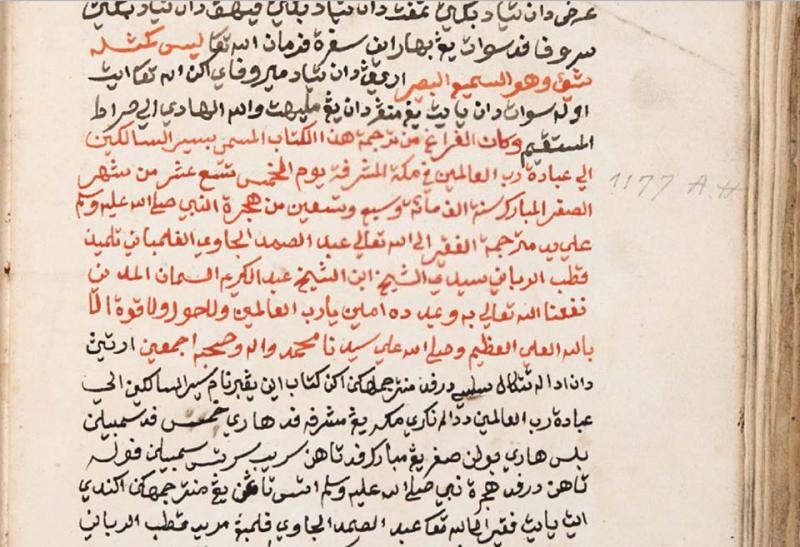 عرض دان تياد بݢي تمڤت دان تياد بݢي ڤيهق دان تياد بݢي
سروڤا قد سوات يڠ بهارو اين سڤرة فرمان الله تعا ليس كمثله
شيء وهو السميع البصير ارتيڽ دان تياد ميروڤاي اكن الله تعا ايت
اوله سوات دان يايت يڠ منڠر دان يڠ مليهت والله الهادي الي صراط
المستقيم وكان الفراغ من ترجمة هذا الكتاب المسمى بسير السالكين
الي عبادة رب العالمين في مكة المشرفة يوم الخميس تسع عشر من شهر
الصفر المبارك سنة الف مائة وسبع وتسعين من هجرة النبي صلى الله عليه وسلم
علي يد مترجمه الفقير الى الله تعالي عبد الصمد الجاوي الفلمباني تلميذ
قطب الرباني سيدي الشيخ ابن الشيخ عبد الكريم السمان المدني
نفعنا الله تعالي به وعبده امين يارب العالمين ولاحول ولاقوة الا
بالله العلي العظيم وصلي الله علي سيدنا محمد واله وصحبه اجمعين ارتيڽ
دان اداله تتكال سلسي درڤد منترجمهكن اكن كتاب اين يڠ برنام سير السالكين الي
عبادة رب العالمين ددالم نݢري مكه يڠ مشرفه قد هاري خميس قد سمبيلن
بلس هاري بولن صفر يڠ مبارك قد تاهن سريب سرتس سمبيلن ڤوله
تاهن درڤد هجرة نبي صلى الله عليه وسلم اتس تاڠن يڠ منترجمهكن اكندي
ايت يايت فقير الى الله تعا عبد الصمد الجاوي ڤلمبڠ مريد قطب الرباني
1177 A.H